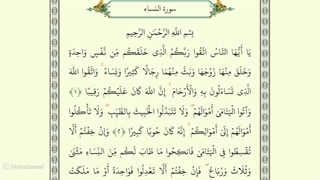 سورة النساء
بِسْمِ اللَّهِ الرَّحْمَٰنِ الرَّحِيمِ
يَا أَيُّهَا النَّاسُ اتَّقُوا رَبَّكُمُ الَّذِي خَلَقَكُم مِّن نَّفْسٍ وَاحِدَةٍ
وَخَلَقَ مِنْهَا زَوْجَهَا وَبَثَّ مِنْهُمَا رِجَالًا كَثِيرًا وَنِسَاءً ۚ وَاتَّقُوا اللَّهَ
الَّذِي تَسَاءَلُونَ بِهِ وَالْأَرْحَامَ ۚ إِنَّ اللَّهَ كَانَ عَلَيْكُمْ رَقِيبًا ﴿١﴾
وَآتُوا الْيَتَامَىٰ أَمْوَالَهُمْ ۖ وَلَا تَتَبَدَّلُوا الْخَبِيثَ بِالطَّيِّبِ ۖ وَلَا تَأْكُلُوا
أَمْوَالَهُمْ إِلَىٰ أَمْوَالِكُمْ ۚ إِنَّهُ كَانَ حُوبًا كَبِيرًا ﴿٢﴾ وَإِنْ خِفْتُمْ أَلَّا
تُقْسِطُوا فِي الْيَتَامَىٰ فَانكِحُوا مَا طَابَ لَكُم مِّنَ النِّسَاءِ مَثْنَىٰ
وَثُلَاثَ وَرُبَاعَ ۖ فَإِنْ خِفْتُمْ أَلَّا تَعْدِلُوا فَوَاحِدَةً أَوْ مَا مَلَكَتْ